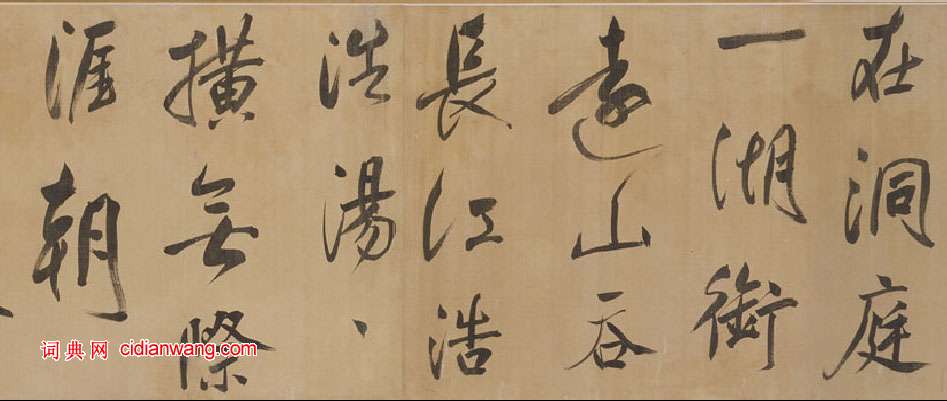 在洞庭
一湖銜
遠山吞
長江浩
浩湯〻
橫無際
涯朝
词典网 cidianwang.com